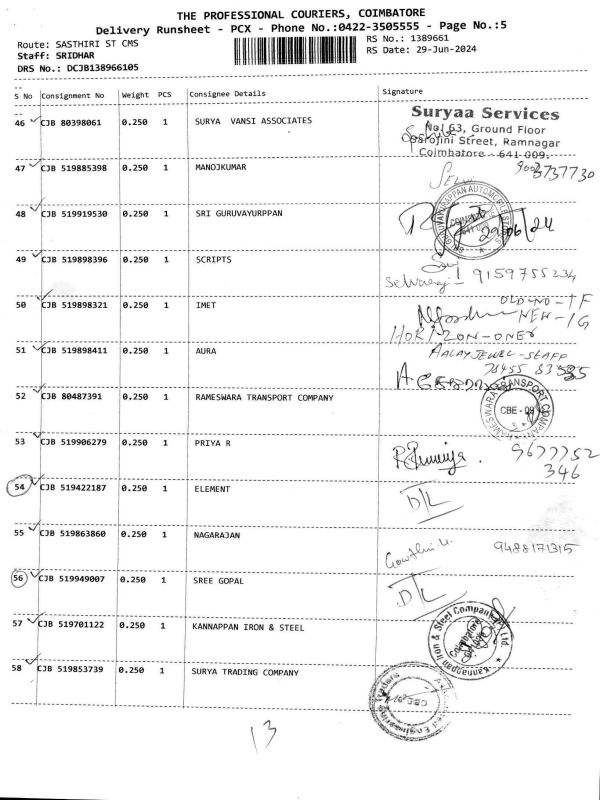 THE PROFESSIONAL COURIERS, COIMBATORE
Delivery Runsheet - PCX - Phone No.:0422-3505555 - Page No.:5
Route: SASTHIRI ST CMS
RS No.: 1389661
Staff: SRIDHAR
RS Date: 29-Jun-2024
DRS No.: DCJB138966105
S No Consignment No Weight PCS Consignee Details Signature
46 CJB 80398061 0.250 1 SURYA VANSI ASSOCIATES
Suryaa Services
No! 63, Ground Floor
Sarojini Street, Ramnagar
Coimbatore - 641 009.
47 CJB 519885398 0.250 1 MANOJKUMAR
48 CJB 519919530 0.250 1 SRI GURUVAYURPPAN
29/06/24
49 CJB 519898396 0.250 1 SCRIPTS
Selvaraj - 9159755234
50 CJB 519898321 0.250 1 IMET
OLD-NO-1F
NEW-1G
HORIZON-ONE
51 CJB 519898411 0.250 1 AURA
AALAYJEWEL-STAFF
52 CJB 80487391 0.250 1 RAMESWARA TRANSPORT COMPANY
CBE - 09
53 CJB 519906279 0.250 1 PRIYA R
9677752
346
54 CJB 519422187 0.250 1 ELEMENT
D/L
55 CJB 519863860 0.250 1 NAGARAJAN
9488171315
56 CJB 519949007 0.250 1 SREE GOPAL
D/L
57 CJB 519701122 0.250 1 KANNAPPAN IRON & STEEL
Kannappan Iron & Steel Company Pvt Ltd.
58 CJB 519853739 0.250 1 SURYA TRADING COMPANY
13